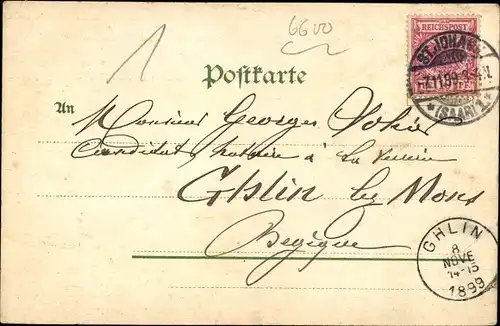 6600
REICHSPOST
ST. JOHANN
7.11.99. 3-4N.
* (SAAR) 1 *
Postkarte
An
Monsieur Georges
Candidat notaire à La
Ghlin lez Mons
Begique
GHLIN
8
NOVE
14-15
1899